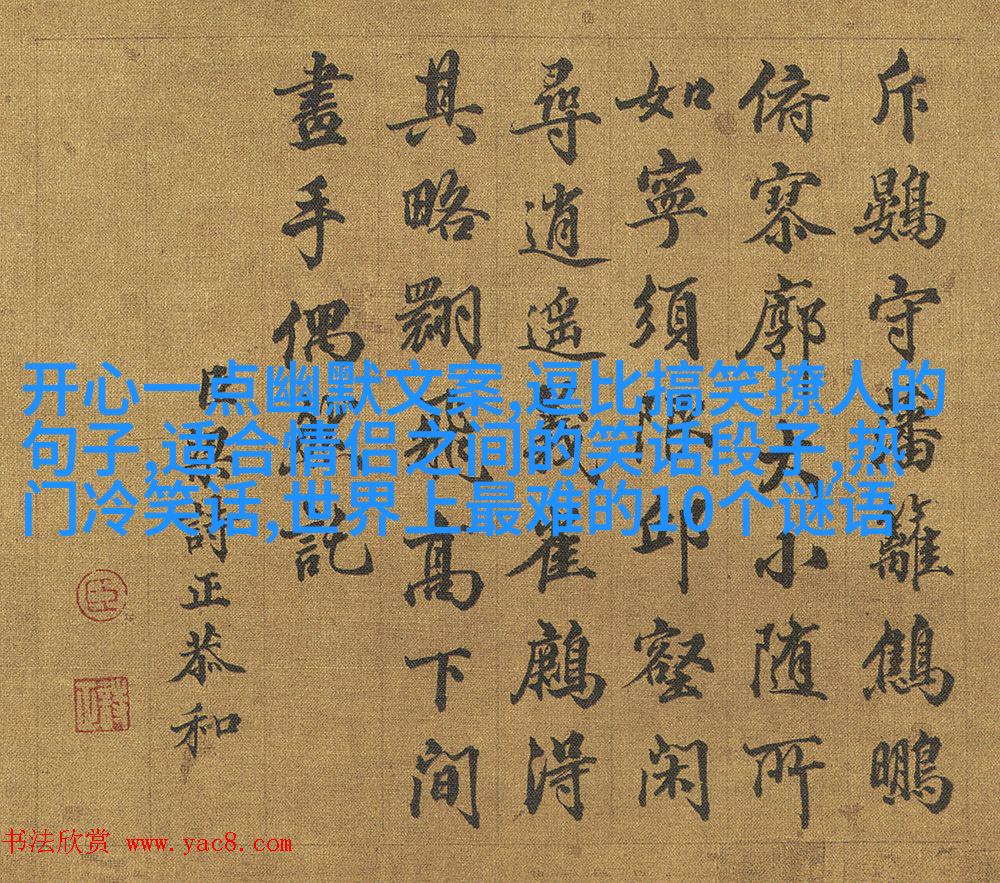 斥鷃守蕃籬鷦鵬
俯寥廓大小随所
如寧須限邱壑閑
尋逍遥義雀得
其略翾飛高下間
畫手偶能託
臣梁詩正恭和
臣
开心一点幽默文案,逗比搞笑撩人的
句子,适合情侣之间的笑话段子,热
门冷笑话,世界上最难的10个谜语
书法欣赏 www.yac8.com